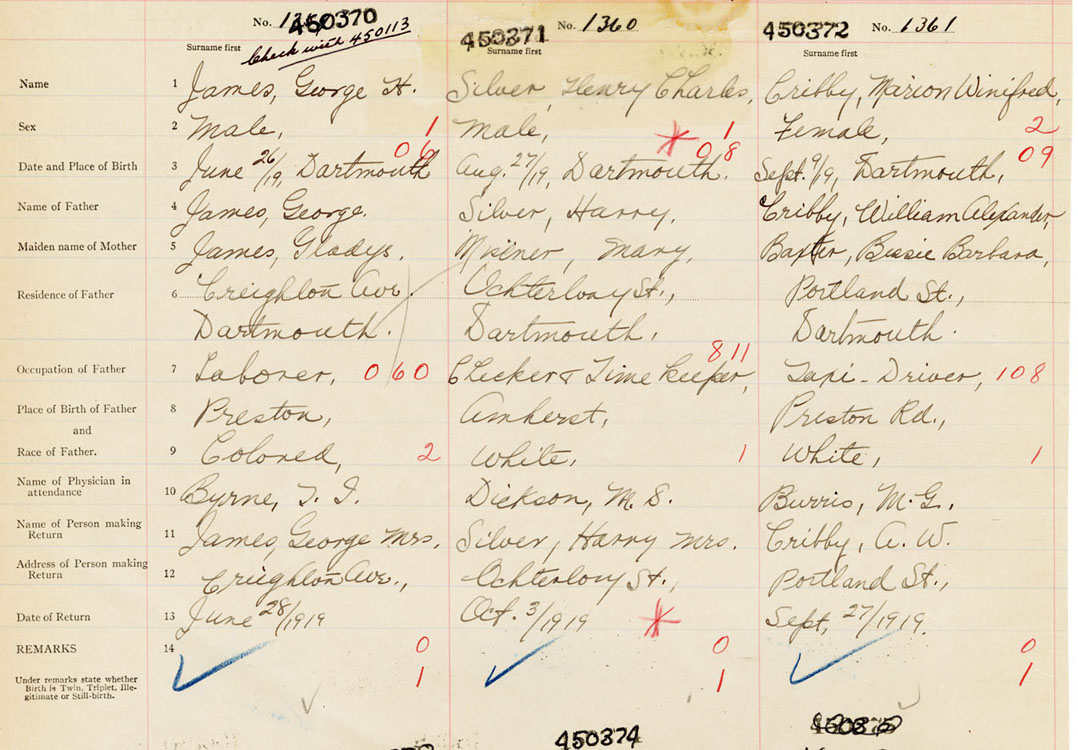 No. 450370 No. 1360 450372 No. 1361
Check with 450113 450371
Surname first Surname first Surname first
Name 1 James, George H. Silver, Henry Charles, Cribby, Marion Winifred,
Sex 2 Male, 1 Male, 1 Female, 2
06 08 09
Date and Place of Birth 3 June 26/19, Dartmouth Aug. 27/19, Dartmouth. Sept. 9/19, Dartmouth,
Name of Father 4 James, George. Silver, Harry, Cribby, William Alexander,
Maiden name of Mother 5 James, Gladys, Mary, Baxter, Bissie Barbara,
Residence of Father 6 Creighton Ave. Ochterlony St., Portland St.,
Dartmouth. Dartmouth, Dartmouth.
811
Occupation of Father 7 Laborer, 060 Checker & Time Keeper, Taxi-Driver, 108
Place of Birth of Father 8 Preston, Amherst, Preston Rd.,
and
Race of Father. 9 Colored, 2 White, 1 White, 1
Name of Physician in
attendance 10 Byrne, T. I. Dickson, M. S. Burris, M. G.
Name of Person making
Return 11 James, George Mrs. Silver, Harry Mrs. Cribby, A. W.
Address of Person making
Return 12 Creighton Ave., Ochterlony St., Portland St.,
Date of Return 13 June 28/1919 Oct. 3/1919 Sept. 27/1919.
REMARKS 14 0 0 0
Under remarks state whether
Birth is Twin, Triplet, Ille-
gitimate or Still-birth. 1 1 1
450374